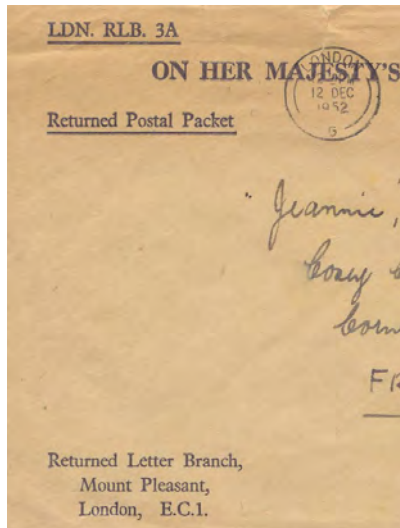 LDN. RLB. 3A
ON HER MAJESTY'S
LONDON
12 DEC
1952
Returned Postal Packet
"Jeannie",
Cosy
Corn
FR
Returned Letter Branch,
Mount Pleasant,
London, E.C.1.